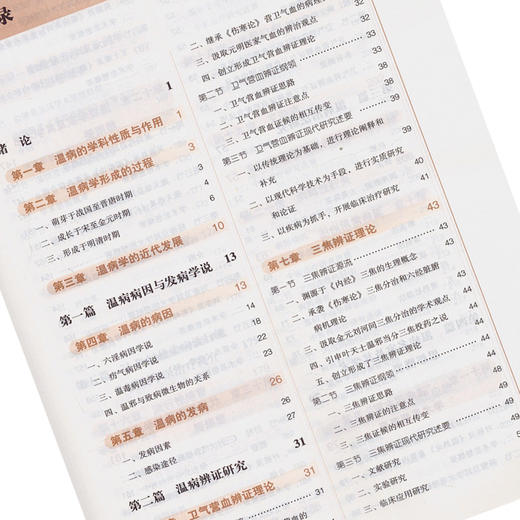 录
绪 论 1
第一章 温病的学科性质与作用 1
第二章 温病学形成的过程 3
一、萌芽于战国至晋唐时期 4
二、成长于宋至金元时期 6
三、形成于明清时期
第三章 温病学的近代发展 10
第一篇 温病病因与发病学说 13
第四章 温病的病因 13
一、六淫病因学说 14
二、疠气病因学说 18
三、温毒病因学说 22
四、温邪与致病微生物的关系 23
第五章 温病的发病 26
一、发病因素 26
二、感染途径 27
第二篇 温病辨证研究 31
卫气营血辨证理论 31
32
二、继承《伤寒论》营卫气血的病理
三、汲取元明医家气血的辨治观点 33
四、创立形成卫气营血辨证理论 33
第二节 卫气营血辨证纲领 38
一、卫气营血辨证思路 38
二、卫气营血辨证注意点 38
三、卫气营血证候的相互传变 39
第三节 卫气营血辨证现代研究述要 39
一、以传统理论为基础，进行理论阐释和
补充 40
二、以现代科学技术为手段，进行实质研究
和论证 41
三、以疾病为抓手，开展临床治疗研究
第七章 三焦辨证理论 43
第一节 三焦辨证源流 43
一、渊源于《内经》三焦的生理概念 43
二、承袭《伤寒论》三焦分治和六经脏腑
病机理论
三、汲取金元刘河间三焦分治的学术观点 44
四、引申叶天士温邪当分三焦投药之说 44
五、创立形成了三焦辨证理论 44
第二节 三焦辨证纲领 44
一、三焦辨证
二、三焦辨证的注意点
三、三焦证候的相互传变 49
第三节 三焦辨证现代研究述要 49
一、文献研究
二、实验研究
三、临床应用研究